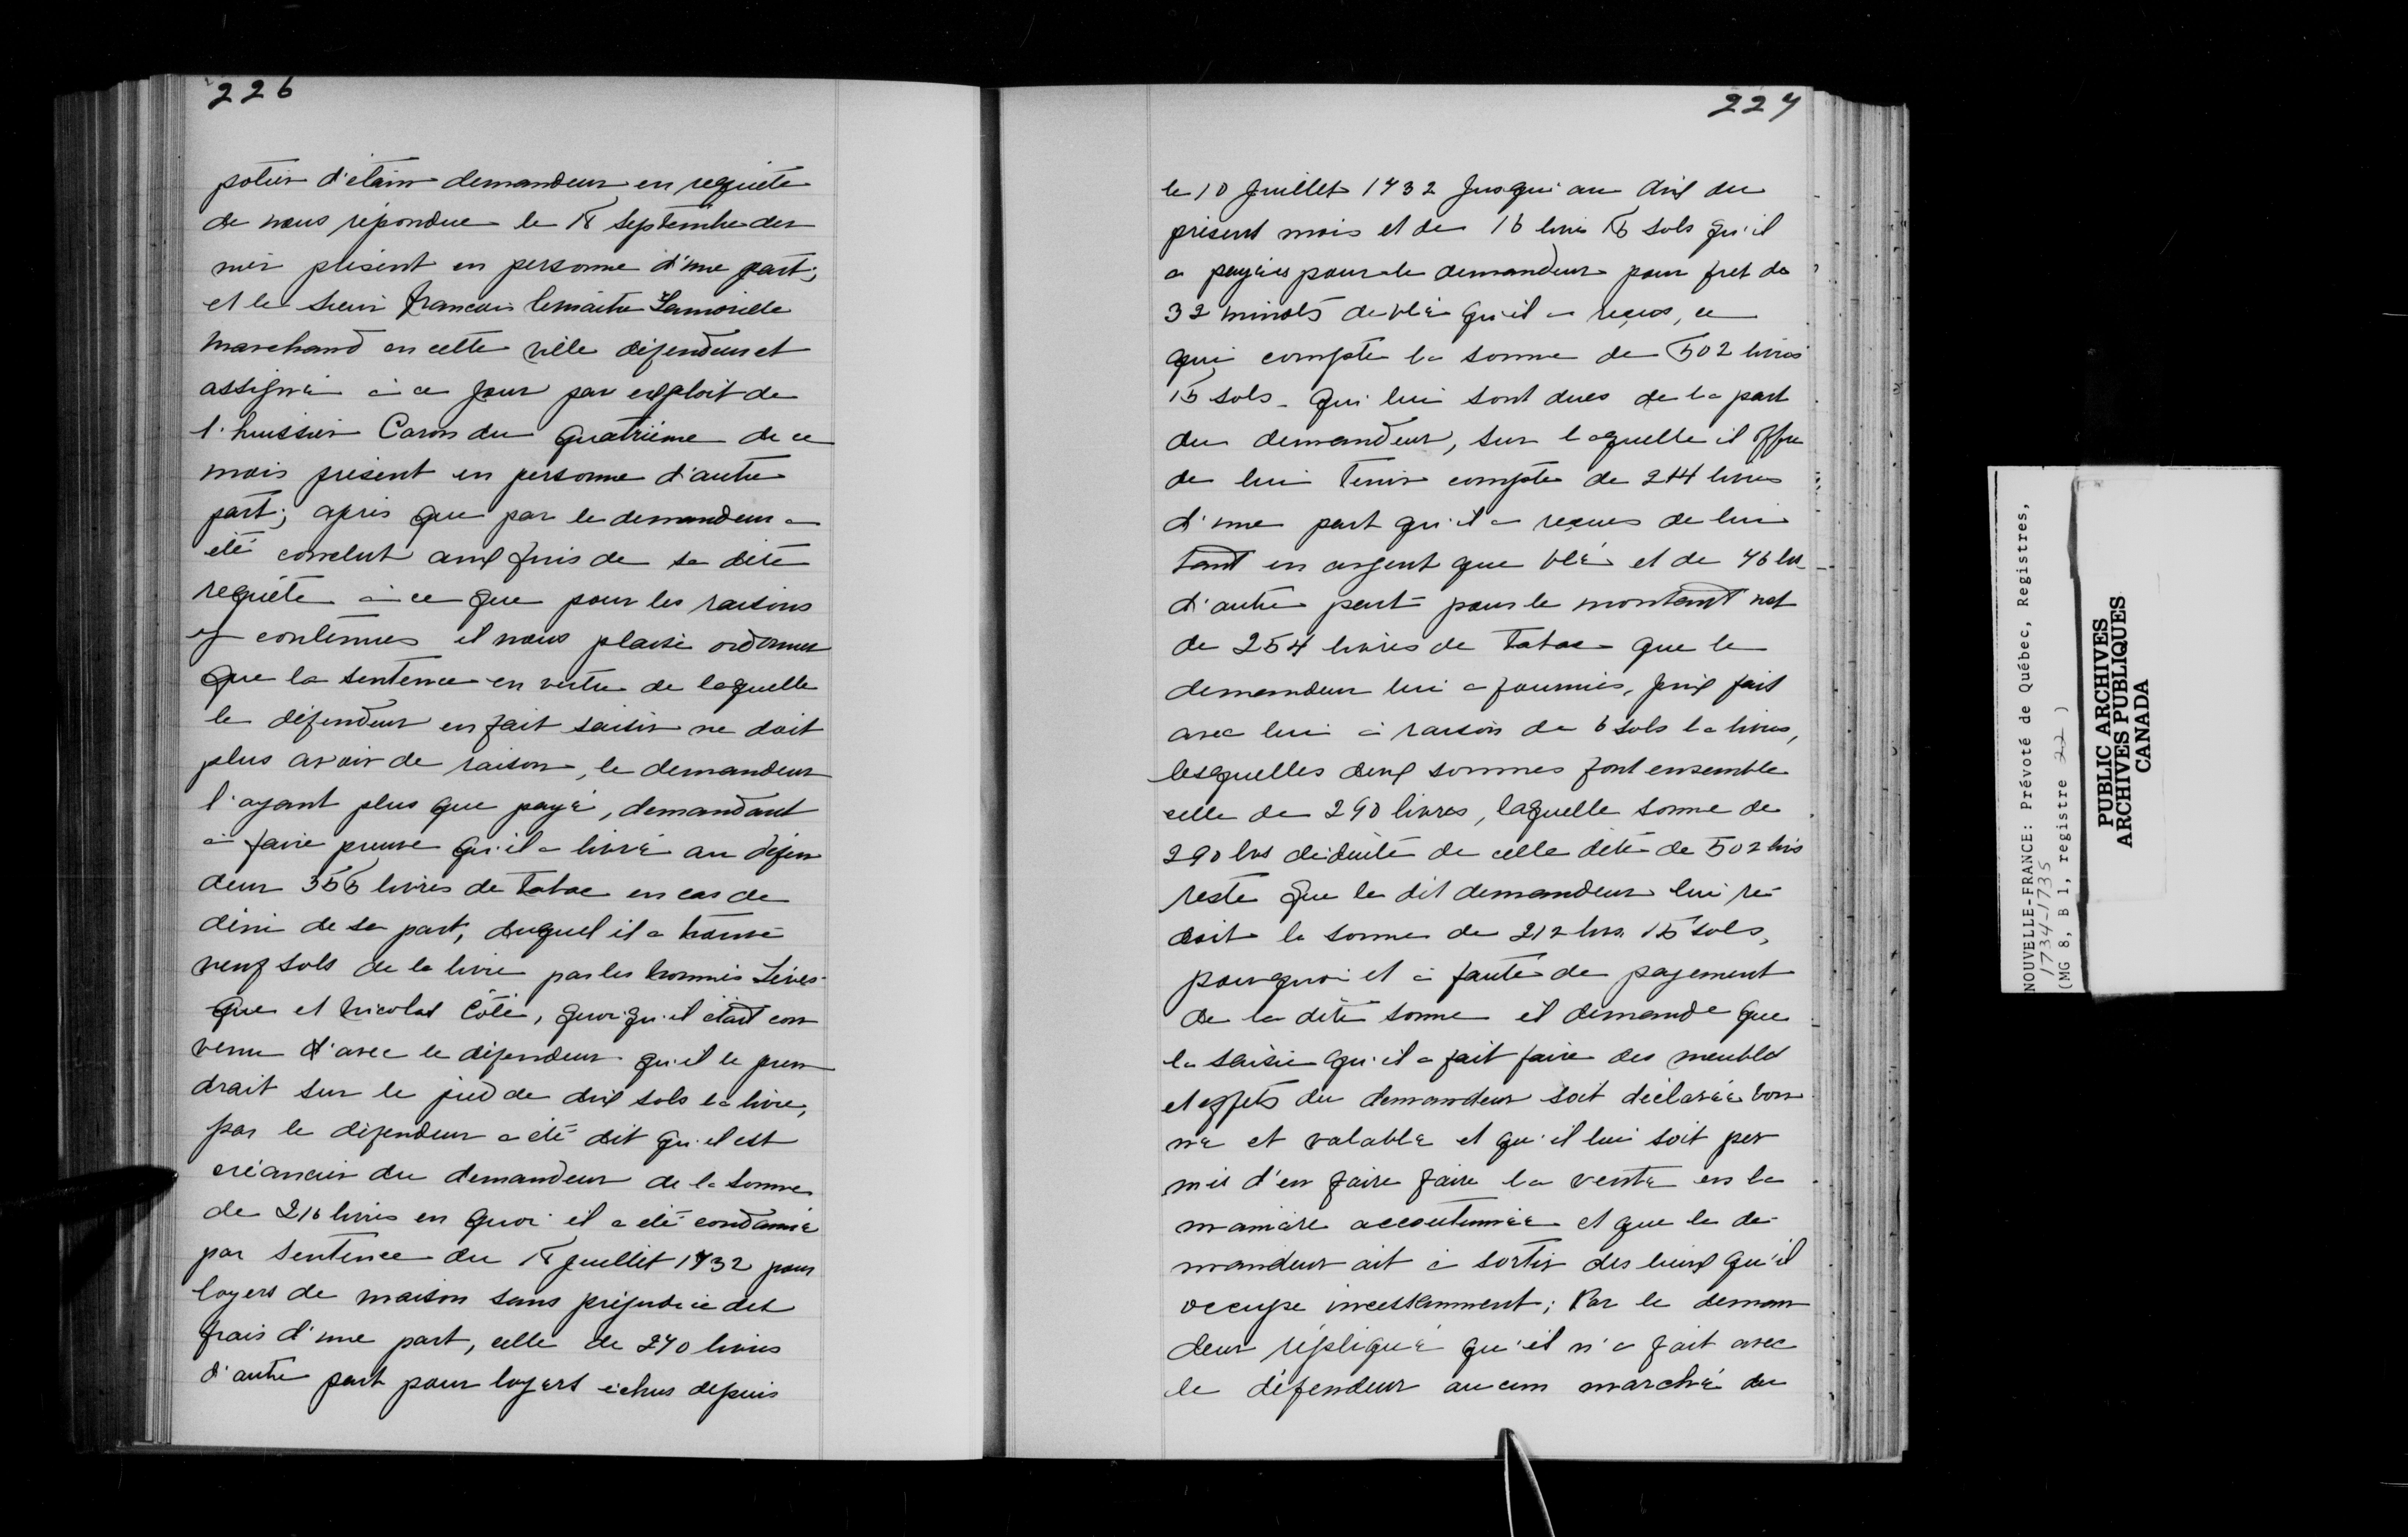 226
potier d'étain demandeur en requête
de nous répondue le 18 septembre der
nier présent en personne d'une part;
et le sieur francois lemaitre Lamorille
marchand en cette ville défendeur et
assigné à ce jour par exploit de
l'huissier Caron du quatrième de ce
mois présent en personne d'autre
part; après que par le demandeur a
été conclut aux fins de sa dite
requête à ce que pour les raisons
y contenues il nous plaise ordonner
que la sentence en vertu de laquelle
le défendeur en fait saisir ne doit
plus avoir de raison, le demandeur
l'ayant plus que payé, demandant
à faire preuve qu'il a livré au défen
deur livres de tabac en cas de
déni de sa part, duquel il a trouvé
neuf sols de la livre par les nommés Léves-
que et Nicolas Côté, quoiqu'il était con
venu d'avec le défendeur qu'il le pren
drait sur le pied de dix sols la livre,
par le défendeur a été dit qu'il est
créancier du demandeur de la somme
de 216 livres en quoi il a été condamné
par sentence du juillet 1732 pour
loyers de maison sans préjudice des
frais d'une part, celle de 270 livres
d'autre part pour loyers échus depuis
227
le 10 Juillet 1732 jusqu'au dix du
présent mois et de 16 livres 15 sols qu'il
a payées pour le demandeur pour fret de
32 minots de blé qu'il a reçus, ce
qui compte la somme de 502 livres
15 sols - qui lui sont dues de la part
du demandeur, sur laquelle il offre
de lui tenir compte de 214 livres
d'une part qu'il a reçues de lui
tant en argent que blé et de 76 lvs
d'autre part pour le montant net
de 254 livres de tabac que le
demandeur lui a fournies, prix fait
avec lui à raison de 6 sols la livre,
lesquelles deux sommes font ensemble
celle de 290 livres, laquelle somme de
290 lvs déduite de celle dite de 502 lvs
reste que le dit demandeur lui re-
doit la somme de 212 lvs. 15 sols,
pourquoi et à faute de payement
de la dite somme il demande que
la saisie qu'il a fait faire des meubles
et effets du demandeur soit déclarée bon
ne et valable et qu'il lui soit per
mis d'en faire faire la vente en la
manière accoutumée et que le de-
mandeur ait à sortir des lieux qu'il
occupe incessamment; Par le deman
deur répliqué qu'il n'a fait avec
le défendeur aucun marché du
NOUVELLE-FRANCE: Prévoté de Québec, Registres,
1734-1735
(MG 8, B 1, registre 22 )
PUBLIC ARCHIVES
ARCHIVES PUBLIQUES
CANADA